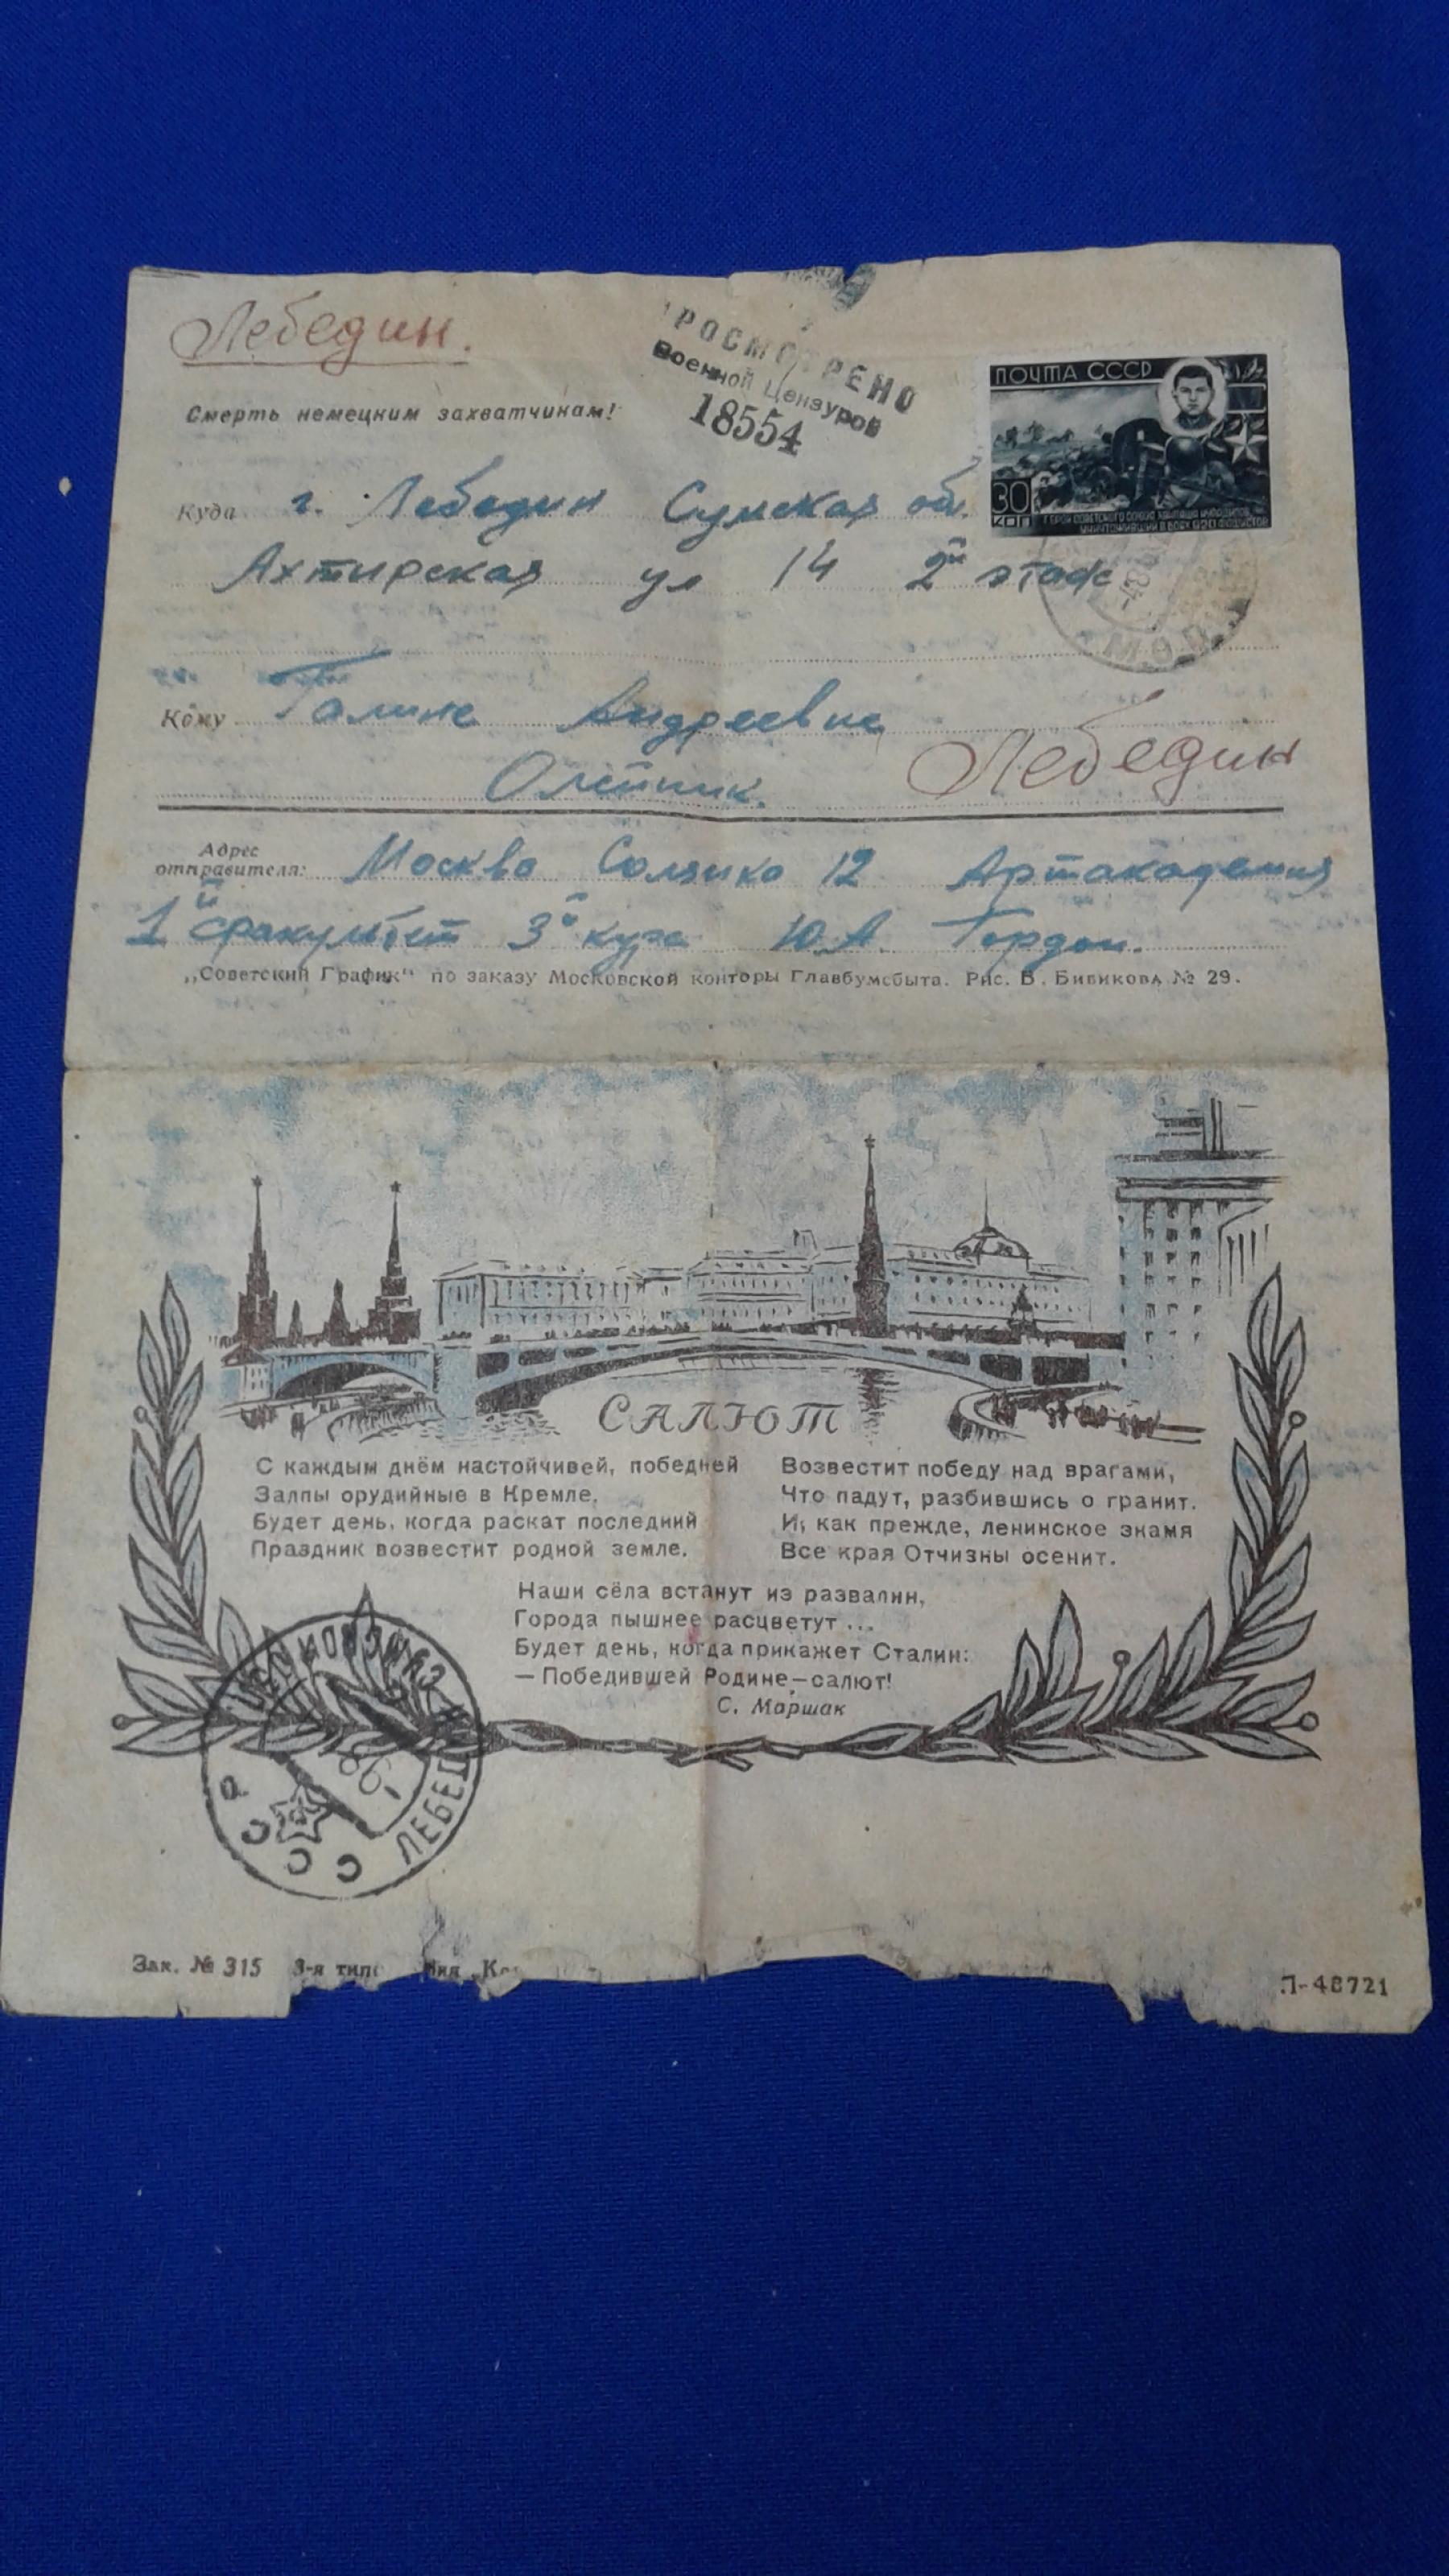 Лебедин.
ПРОСМОТРЕНО
Военной Цензурой
18554
ПОЧТА СССР
30
КОП
Смерть немецким захватчикам!
Куда г. Лебедин Сумская обл.
Ахтирская ул 14 2й этаж
Кому Галине Андреевне
Олейник.
Лебедин
Адрес
отправителя: Москва Солянка 12 Артакадемия
1й факультет 3й курс Ю.А. Гордон.
„Советский График“ по заказу Московской конторы Главбумсбыта. Рис. В. Бибикова № 29.
САЛЮТ
С каждым днём настойчивей, победней
Залпы орудийные в Кремле.
Будет день, когда раскат последний
Праздник возвестит родной земле.
Возвестит победу над врагами,
Что падут, разбившись о гранит.
И, как прежде, ленинское знамя
Все края Отчизны осенит.
Наши сёла встанут из развалин,
Города пышнее расцветут ...
Будет день, когда прикажет Сталин:
— Победившей Родине—салют!
С. Маршак
ЛЕБЕД
СССР
Зак. № 315 3-я тип
Л-48721